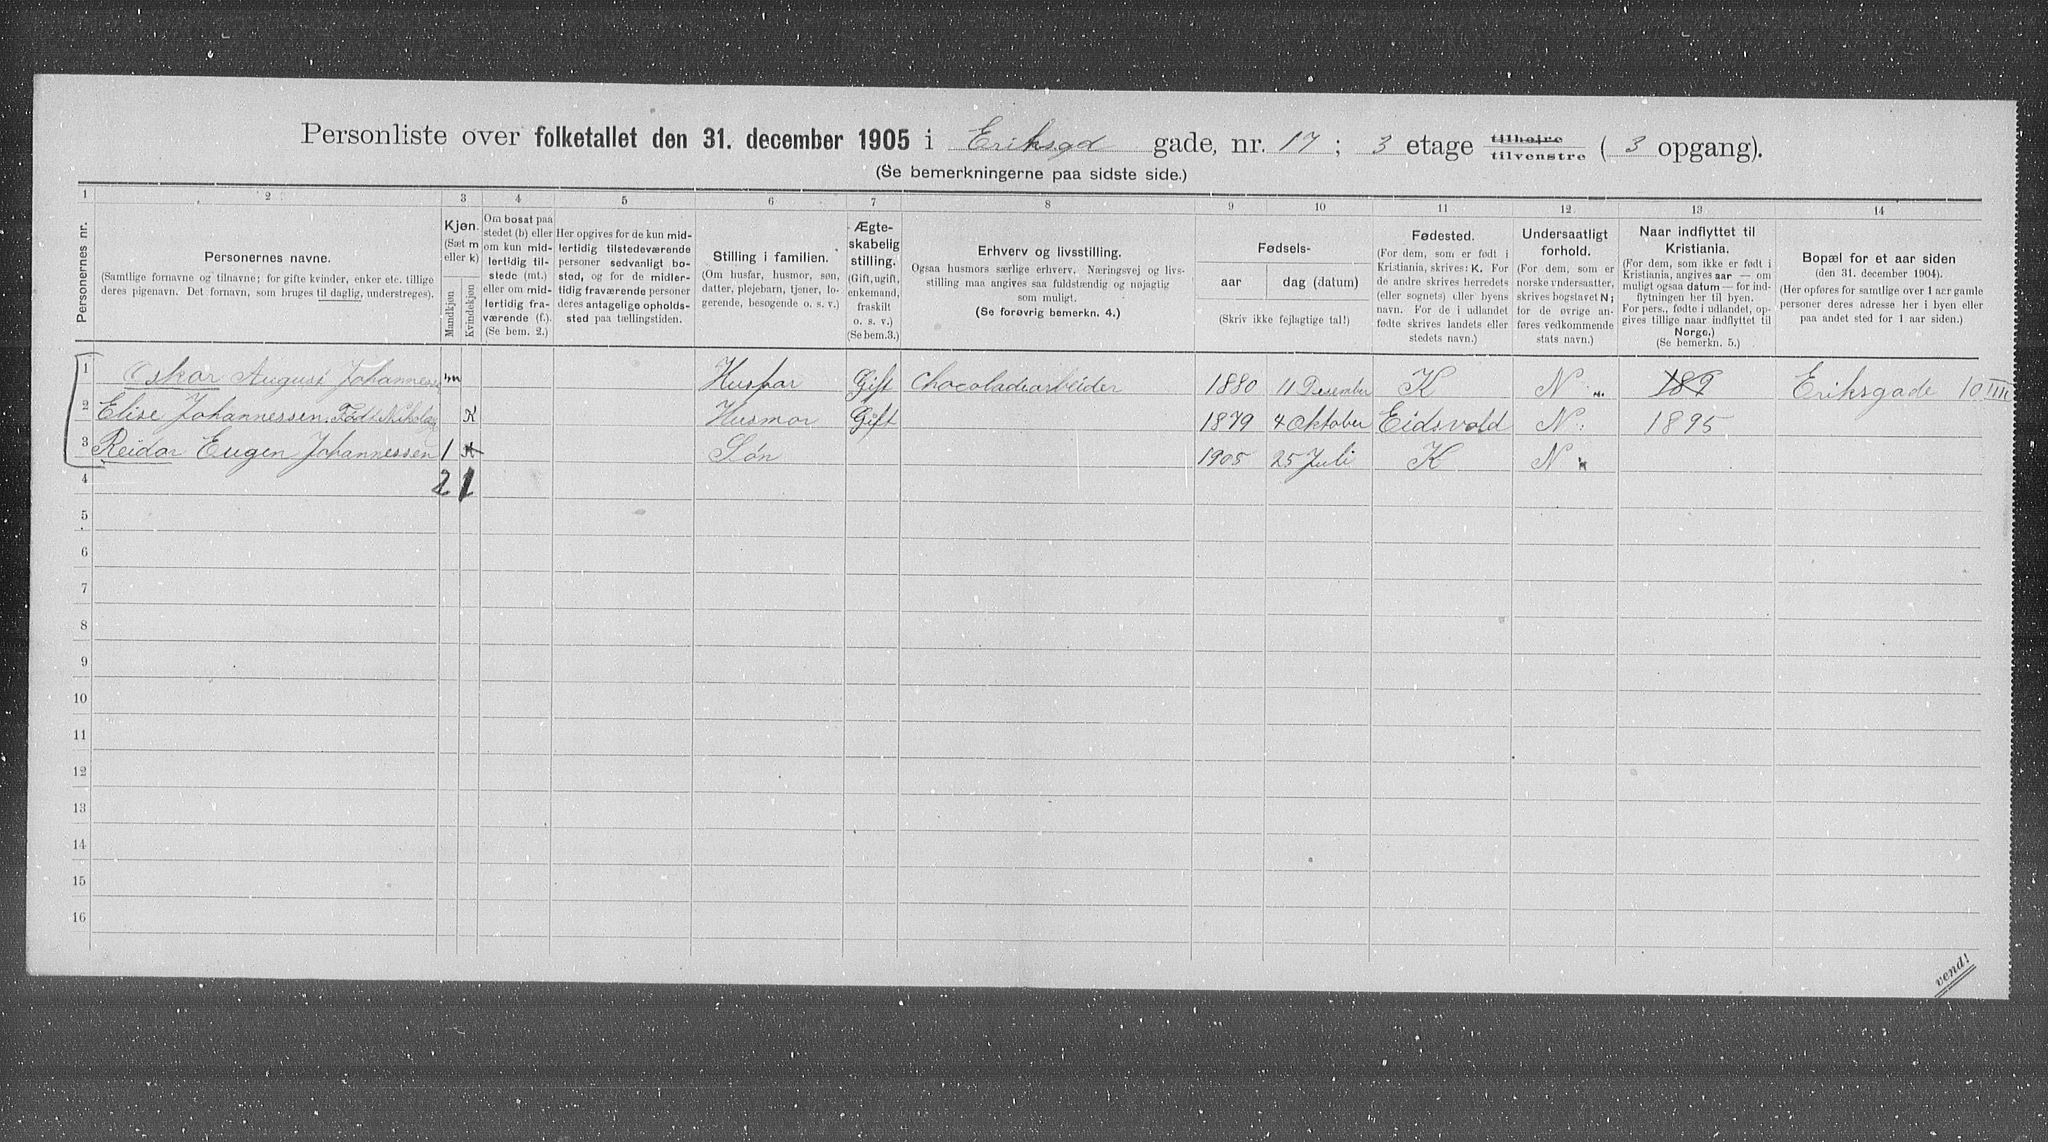 Personliste over folketallet den 31. december 1905 i Eriksgd gade, nr. 17; 3 etage tilhøire tilvenstre (3 opgang).
(Se bemerkningerne paa sidste side.)
1 2 3 4 5 6 7 8 9 10 11 12 13 14
Personernes nr.
Personernes navne.
(Samtlige fornavne og tilnavne; for gifte kvinder, enker etc. tillige
deres pigenavn. Det fornavn, som bruges til daglig, understreges).
Kjøn.
(Sæt m
eller k)
Mandkjøn
Kvindekjøn
Om bosat paa
stedet (b) eller
om kun mid-
lertidig til-
stede (mt.)
eller om mid-
lertidig fra-
værende (f.).
(Se bem. 2.)
Her opgives for de kun mid-
lertidig tilstedeværende
personer sedvanligt bo-
sted, og for de midler-
tidig fraværende personer
deres antagelige opholds-
sted paa tællingstiden.
Stilling i familien.
(Om husfar, husmor, søn,
datter, plejebarn, tjener, lo-
gerende, besøgende o. s. v.)
Ægte-
skabelig
stilling.
(Gift, ugift,
enkemand,
fraskilt
o. s. v.)
(Se bem.3.)
Erhverv og livsstilling.
Ogsaa husmors særlige erhverv. Næringsvej og livs-
stilling maa angives saa fuldstændig og nøjagtig
som muligt.
(Se forøvrig bemerkn. 4.)
Fødsels-
aar
dag (datum)
(Skriv ikke fejlagtige tal!)
Fødested.
(For dem, som er født i
Kristiania, skrives: K. For
de andre skrives herredets
(eller sognets) eller byens
navn. For de i udlandet
fødte skrives landets eller
stedets navn.)
Undersaatligt
forhold.
(For dem, som er
norske undersaatter,
skrives bogstavet N;
for de øvrige an-
føres vedkommende
stats navn.)
Naar indflyttet til
Kristiania.
(For dem, som ikke er født i
Kristiania, angives aar — om
muligt ogsaa datum — for ind-
flytningen her til byen.
For pers., fødte i udlandet, op-
gives tillige naar indflyttet til
Norge.)
(Se bemerkn. 5.)
Bopæl for et aar siden
(den 31. december 1904).
(Her opføres for samtlige over 1 aar gamle
personer deres adresse her i byen eller
paa andet sted for 1 aar siden.)
1 Oskar August Johannesen m Husfar Gift Chocoladearbeider 1880 11 Desember K N 189 Eriksgade 10 III
2 Elise Johannessen, Født Nikolai K Husmor Gift 1879 4 Oktober Eidsvold N 1895
3 Reidar Eugen Johannessen 1 K Søn 1905 25 Juli K N
4 2 1
5
6
7
8
9
10
11
12
13
14
15
16
vend!